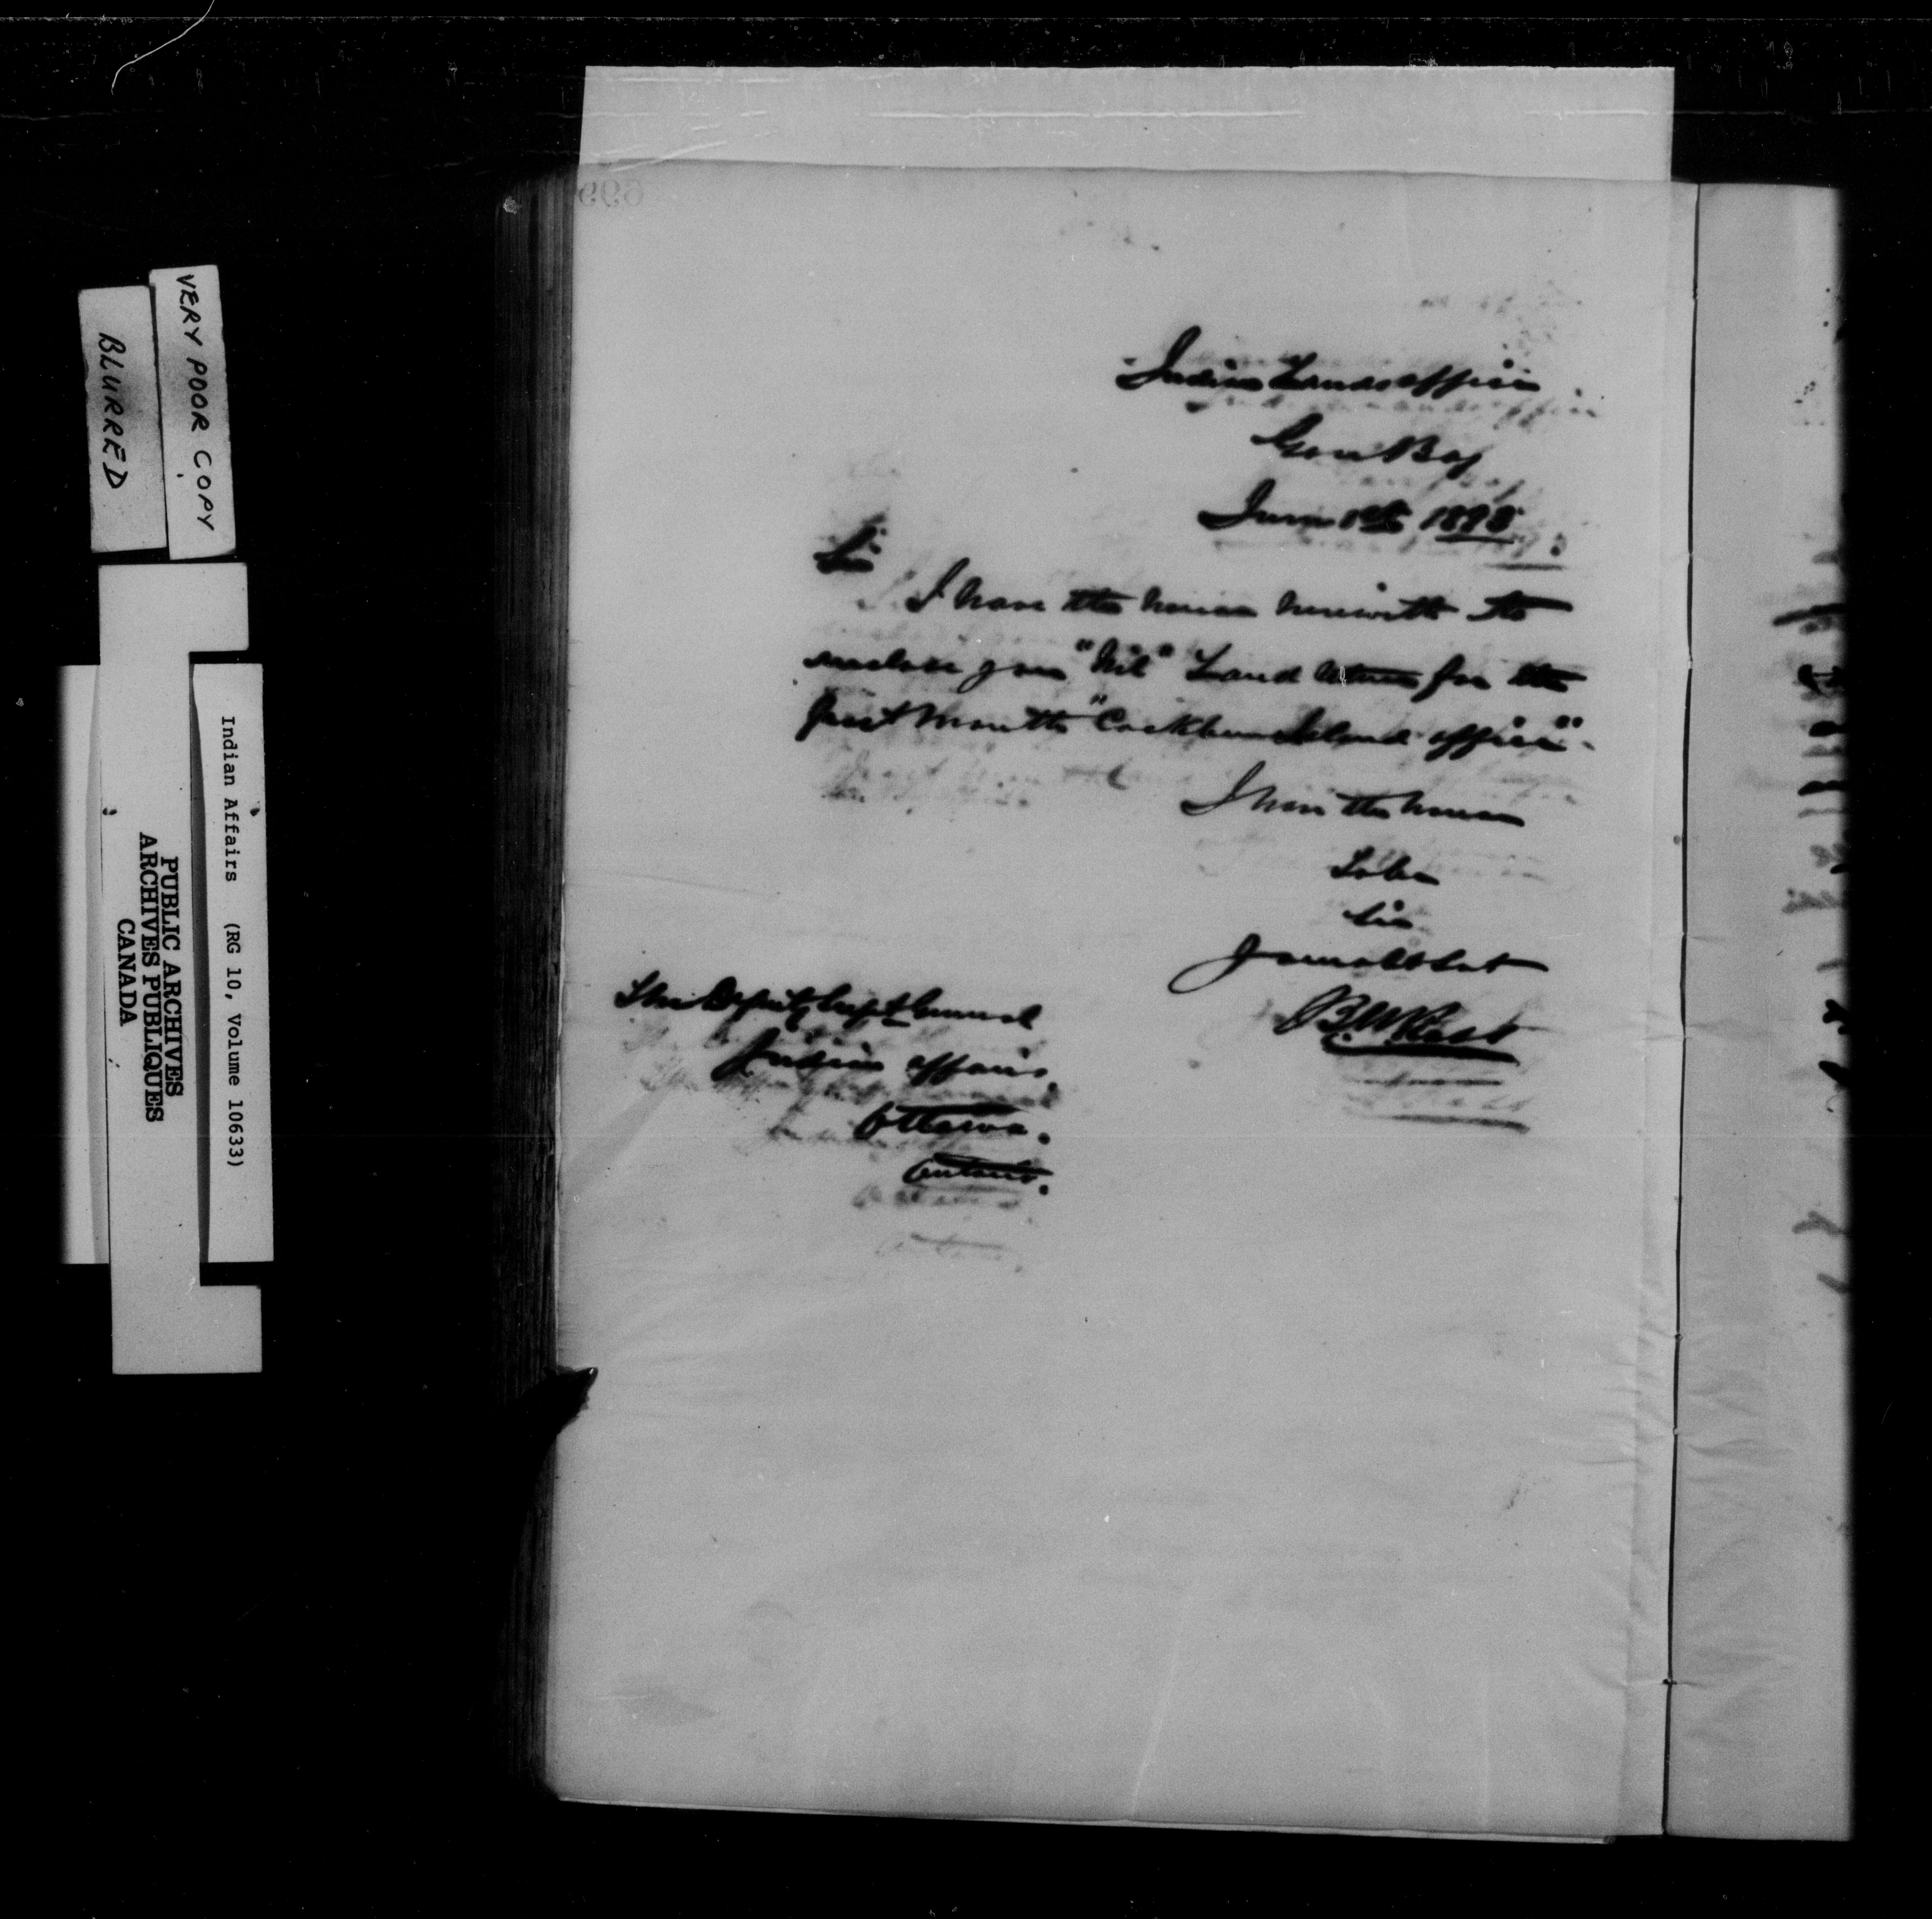 Indian Lands Office
Gore Bay
June 1st 1898.
Sir
I have the honor herewith to
enclose you "Nil" Land Return for the
past month "Cockburn Island office".
I have the honor
To be
Sir
Your obt Svt
B W Ross
The Deputy Supt General
Indian affairs.
Ottawa.
Ontario.
VERY POOR COPY
BLURRED
Indian Affairs (RG 10, Volume 10633)
PUBLIC ARCHIVES
ARCHIVES PUBLIQUES
CANADA